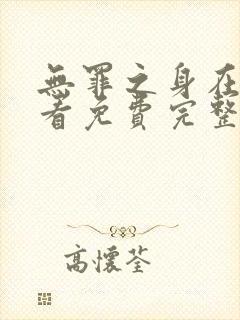 無罪之身在
看免費完整
高懷荃